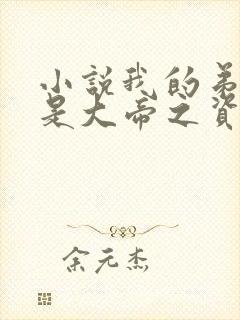 小說我的弟
是大帝之資
余元杰